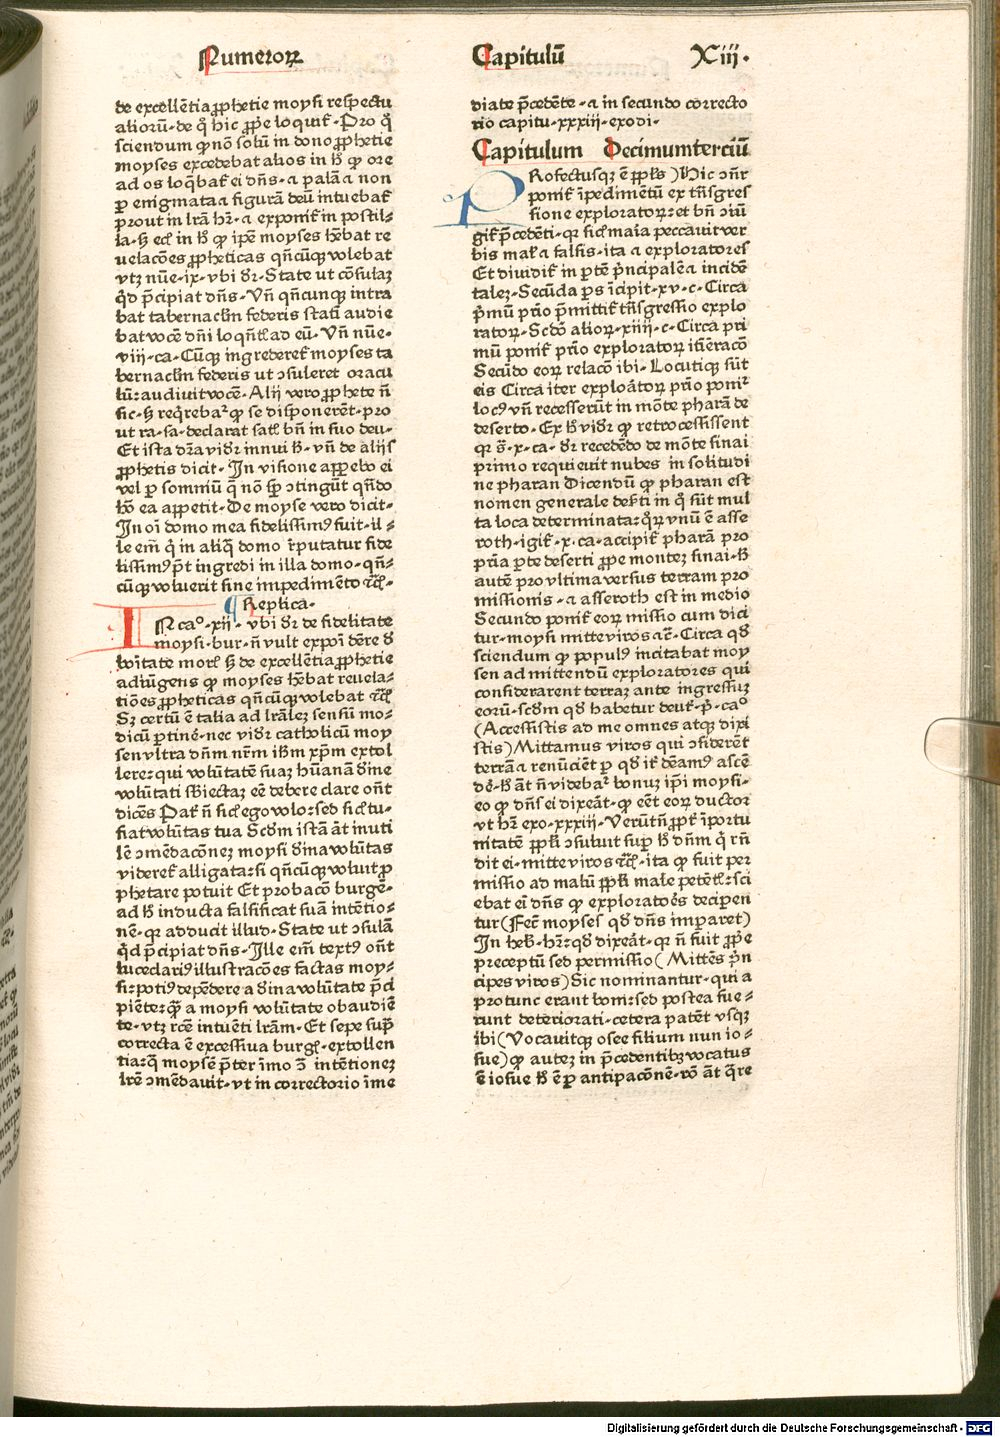 Numeroꝝ
Capitulū
Xiij.
de excellētia ꝓphetie moysi respectu
alioꝝ.de q̇ hic ꝓpe loquit̃.Pro q̇
sciendum ꝙ nō solū in dono ꝓphetie
moyses excedebat alios in h̄ ꝙ ore
ad os loq̄bat̃ ei dn̄s.⁊ palā ⁊ non
ꝑ enigmata ⁊ figurā deū intuebat̃
prout in lr̄a hr̄.⁊ exponit̃ in postil⸗
la.ꝫ ecī in h̄ ꝙ ipē moyses hēbat re
uelacōes ꝓpheticas qn̄cūqꝫ volebat
vtꝫ nūe.ix.vbi dr̄.State ut cōsulaꝫ
q̇d p̄cipiat dn̄s.Vn̄ qn̄cunqꝫ intra
bat tabernaclm̄ federis statī audie
bat vocē dn̄i loqn̄t̃ ad eū.Vn̄ nūe.
viij.ca.Cūqꝫ ingrederet̃ moyses ta
bernaclm̄ federis ut ɔsuleret oracu
lū:audiuit vocē.Alij vero ꝓphete n̄
sic.ꝫ reqͥrebaꝰ ꝙ se disponerēt.pro
ut ra.sa.declarat sat̃ bn̄ in suo deu.
Et ista dr̄a vidr̄ innui h̄.vn̄ de alijs
ꝓphetis dicit.In visione apꝑebo ei
vel ꝑ somniū q̄ nō sꝑ ɔtingūt qn̄do
hō ea appetit.De moyse vero dicit.
In oī domo mea fidelissimꝰ fuit.il⸗
le em̄ q̇ in aliq̄ domo r̄putatur fide
lissimꝰ pt̄ ingredi in illa domo.qn̄⸗
cūqꝫ voluerit sine impedimēto ⁊c̄.
¶ Replica.
IN caº.xij.vbi dr̄ de fidelitate
moysi.bur.n̄ vult expoī dēre d̄
bōitate mor̄ ꝫ de excellētia ꝓphetie
adiūgens ꝙ moyses hēbat reuela⸗
tiōes ꝓpheticas qn̄cūqꝫ volebat ⁊c̄
Sꝫ certū ē talia ad lr̄āleꝫ sensū mo⸗
dicū ꝑtinē.nec vidr̄ catholicū moy
sen vltra dn̄m nr̄m ihm̄ xp̄m extol
lere:qui volūtatē suaꝫ hūanā d̄ine
volūtati sb̄iectaꝫ eē debere clare on̄t
dicēs Pat̃ n̄ sic̄ ego volo:sed sic̄ tu.
fiat volūtas tua Scd̄m istā āt inuti
lē ɔmēdacōneꝫ moysi d̄ina volūtas
videret̃ alligata:si qn̄cūqꝫ voluit ꝓ
phetare potuit Et probacō burgē.
ad h̄ inducta falsificat suā intētio⸗
nē.qꝛ adducit illud.State ut ɔsulā
q̇d p̄cipiat dn̄s.Ille em̄ textꝰ on̄t
lucedariꝰ illustracōes factas moy⸗
si:potiꝰ depēdere a d̄ina volūtate p̄ci
piēte:q̄ꝫ a moysi volūtate obaudiē
te.vtꝫ rcē intuēti lr̄am.Et sepe supͣ
correcta ē excessiua burg̃.extollen
tia:qꝫ moysē p̄ter īmo ɔͣ intētioneꝫ
lr̄e ɔmēdauit.vt in correctorio īme
diate p̄cedēte.⁊ in secundo correcto
rio capitu.xxxiij.exodi.
Capitulum Decimumterciū
PRofectusqꝫ ē ppl̄s )Hic ɔn̄r
ponit̃ īpedimētū ex tn̄sgres
sione exploratoꝝ:et bn̄ ɔiū
git̃ p̄cedēti.qꝛ sic̄ maīa peccauit ver
bis mal̃ ⁊ falsis.ita ⁊ exploratores
Et diuidit̃ in ꝑtē pͥncipalē ⁊ incidē
taleꝫ.Secūda ꝑs īcipit.xv.c.Circa
pͥmū pͥmo p̄mittit̃ tn̄sgressio explo
ratoꝝ.Scd̄o alioꝝ.xiiij.c.Circa pri
mū ponit̃ pͥmo exploratoꝝ itīeracō
Secūdo eoꝝ relacō ibi.Locutiqꝫ sūt
eis Circa iter exploātoꝝ pͥmo poniꝰ
locꝰ vn̄ recesserūt in mōte pharā de
deserto.Ex h̄ vidr̄ ꝙ retrocessissent
qꝛ s̄.x.ca.dr̄ recedēdo de mōte sinai
primo requieuit nubes in solitudi
ne pharan Dicendū ꝙ pharan est
nomen generale des̄ti in q̇ sūt mul
ta loca determinata:qͦꝝ vnū ē asse
roth.igit̃.x.ca.accipit̃ pharā pro
pͥria ꝑte deserti ꝓpe monteꝫ sinai.h̄
autē pro vltima versus terram pro
missionis.⁊ asseroth est in medio
Secundo ponit̃ eoꝝ missio cum dici
tur.moysi mitte viros ⁊c̄.Circa qd̄
sciendum ꝙ populꝰ incitabat moy
sen ad mittendū exploratores qui
considerarent terraꝫ ante ingressuꝫ
eorū.scd̄m qd̄ habetur deut̃.pͥ.caº
(Accessistis ad me omnes atqꝫ dixi
stis)Mittamus viros qui ɔsiderēt
terrā ⁊ renūciēt ꝑ qd̄ it̃ dēamꝰ ascē
dē.h̄ āt n̄ videbaꝰ bonuꝫ ip̄i moysi.
eo ꝙ dn̄s ei dixeāt.ꝙ eēt eoꝝ ductor
vt hr̄ exo.xxxiij.Verūtn̄ ꝓpt̃ īportu
nitatē ppl̄i ɔsuluit suꝑ h̄ dn̄m q̇ rn̄
dit ei.mitte viros ⁊c̄.ita ꝙ fuit per
missio ad malū ppl̄i male petētʒ:sci
ebat eī dn̄s ꝙ exploratoēs deciperen
tur(Fec̄ moyses qd̄ dn̄s imparet)
In heb̃.hr̄:qd̄ dixeāt.qꝛ n̄ fuit ꝓpͥe
preceptū sed permissio( Mittēs pͥn
cipes viros)Sic nominantur.qui a
pro tunc erant boni:sed postea fue⸗
runt deteriorati.cetera patēt vsqꝫ
ibi(Vocauitqꝫ osee filium nun io⸗
sue)ꝙ auteꝫ in p̄cedentibꝫ vocatus
ē iosue h̄ ē ꝑ antipacōnē.rō āt q̄re
Digitalisierung gefördert durch die Deutsche Forschungsgemeinschaft - DFG